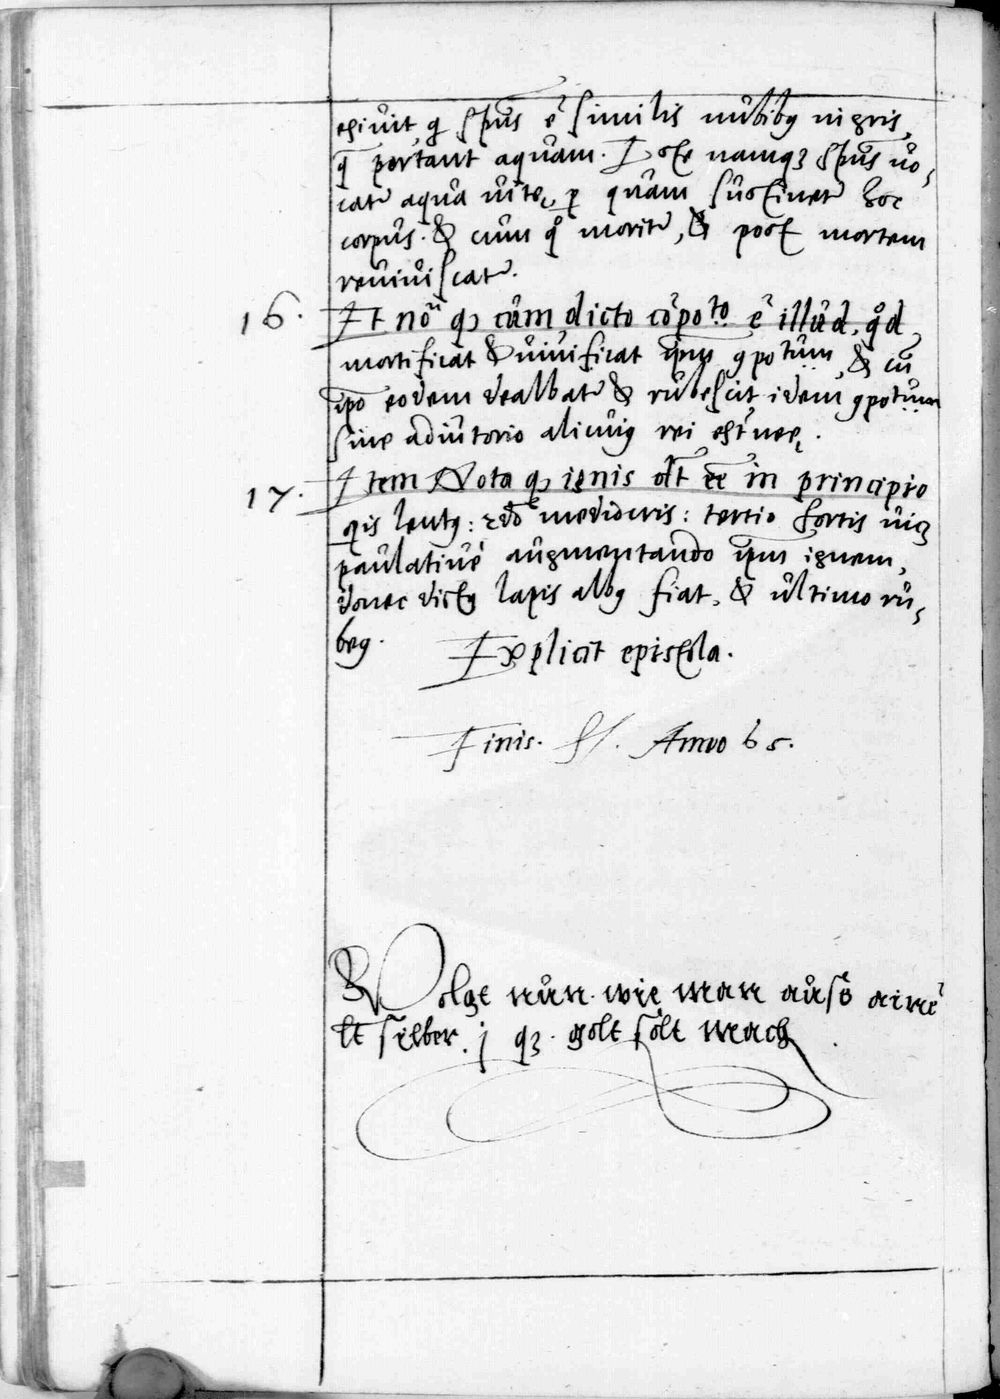 exivit, q̃ sp̃us ẽ similis nubibꝯ nigris,
q̃ portant aquam. Iste namqꝫ sp̃us vo,
catr̃ aqua vite, ꝑ quam sustinetr̃ hoc
corpus. & cum qͦ moritr̃, & post mortem
reviviscatr̃.
16. Et noͣ qꝫ cum dicto cõpoᵗᵒ ẽ illud, qͦd
mortificat & vivificat ip̃m ꝯpotum, & cũ
ip̃o eodem dealbatr̃ & rubescit idem ꝯpotum
sine adiutorio alicuiꝯ rei
17. Item Nota qꝫ ignis dꝫ eẽ in principio
lentꝯ: 2do mediocris: tertio fortis
paulative augmentando ip̃m ignem,
donec dictꝯ lapis albꝯ fiat, & ultimo ru,
beꝯ. Explicit epistola.
Finis. Anno 65.
Volge nun wie man auß ainẽ
lt silber j qꝫ. golt solt mach